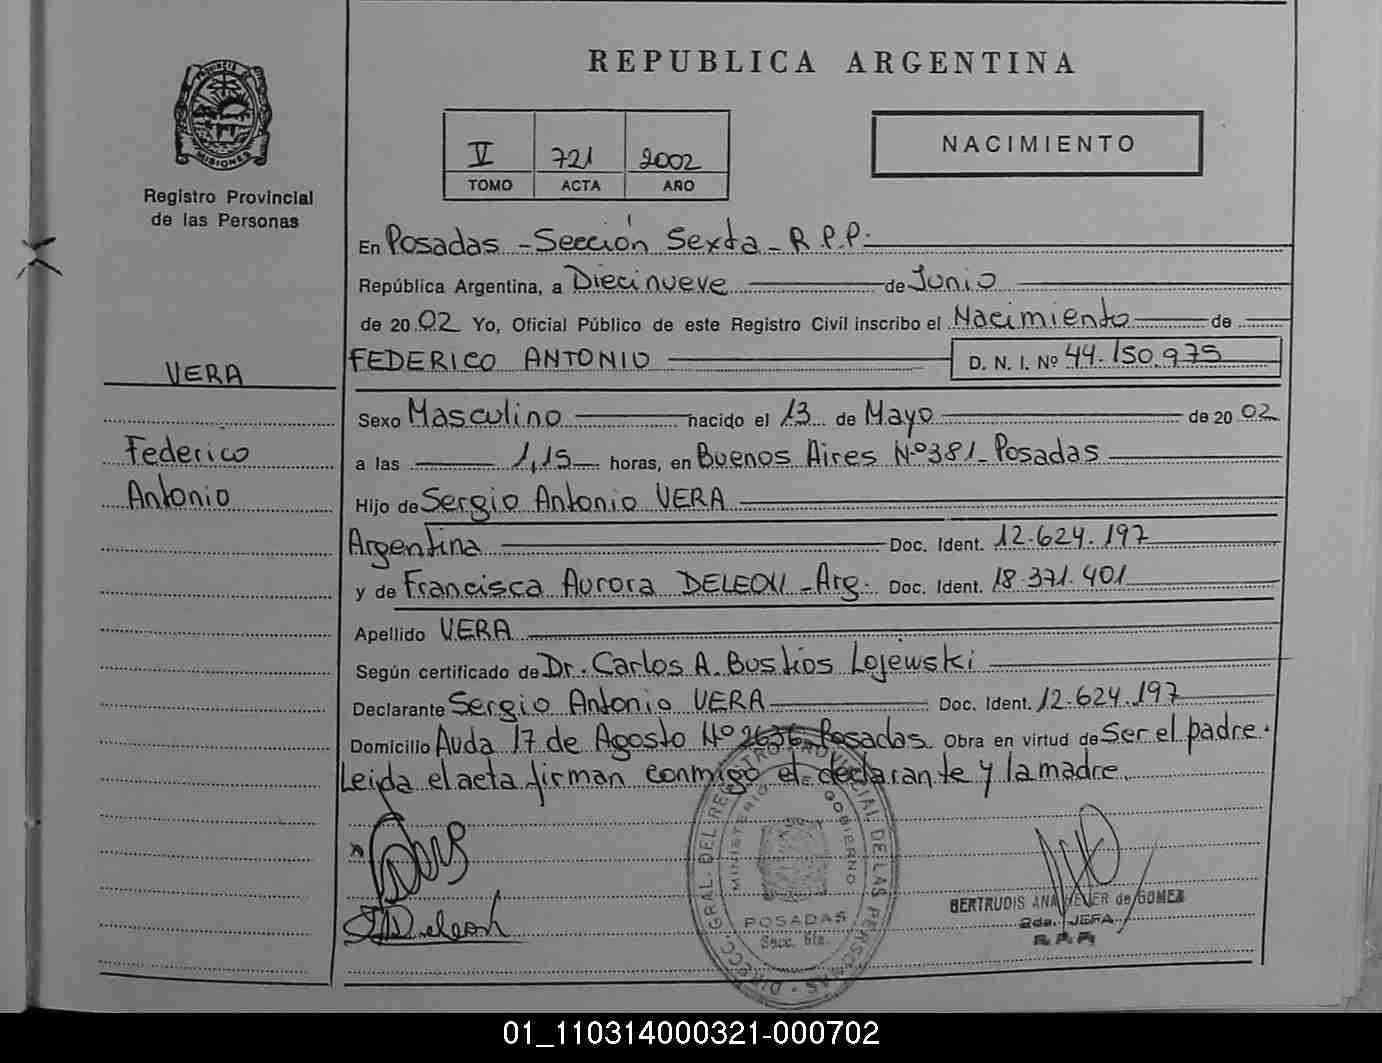 REPUBLICA ARGENTINA
PROVINCIA DE
MISIONES
Registro Provincial
de las Personas
V 721 2002
TOMO ACTA AÑO
NACIMIENTO
En Posadas - Sección Sexta - R.P.P.
República Argentina, a Diecinueve de Junio
de 2002 Yo, Oficial Público de este Registro Civil inscribo el Nacimiento de
FEDERICO ANTONIO D. N. I. Nº 44.150.975
VERA
Federico
Antonio
Sexo Masculino nacido el 13 de Mayo de 2002
a las 1,15 horas, en Buenos Aires Nº 381 - Posadas
Hijo de Sergio Antonio VERA
Argentina Doc. Ident. 12.624.197
y de Francisca Aurora DELEON - Arg. Doc. Ident. 18.371.401
Apellido VERA
Según certificado de Dr. Carlos A. Bustios Lojewski
Declarante Sergio Antonio VERA Doc. Ident. 12.624.197
Domicilio Avda 17 de Agosto Nº 2636 Posadas. Obra en virtud de Ser el padre.
Leida el acta firman conmigo el declarante y la madre.
DIRECC. GRAL. DEL REGISTRO PROVINCIAL DE LAS PERSONAS
MINISTERIO GOBIERNO
POSADAS
Secc. 6ta.
Deleon
BERTRUDIS ANA de GOMEZ
2da. JEFA
R. P. P.
01_110314000321-000702